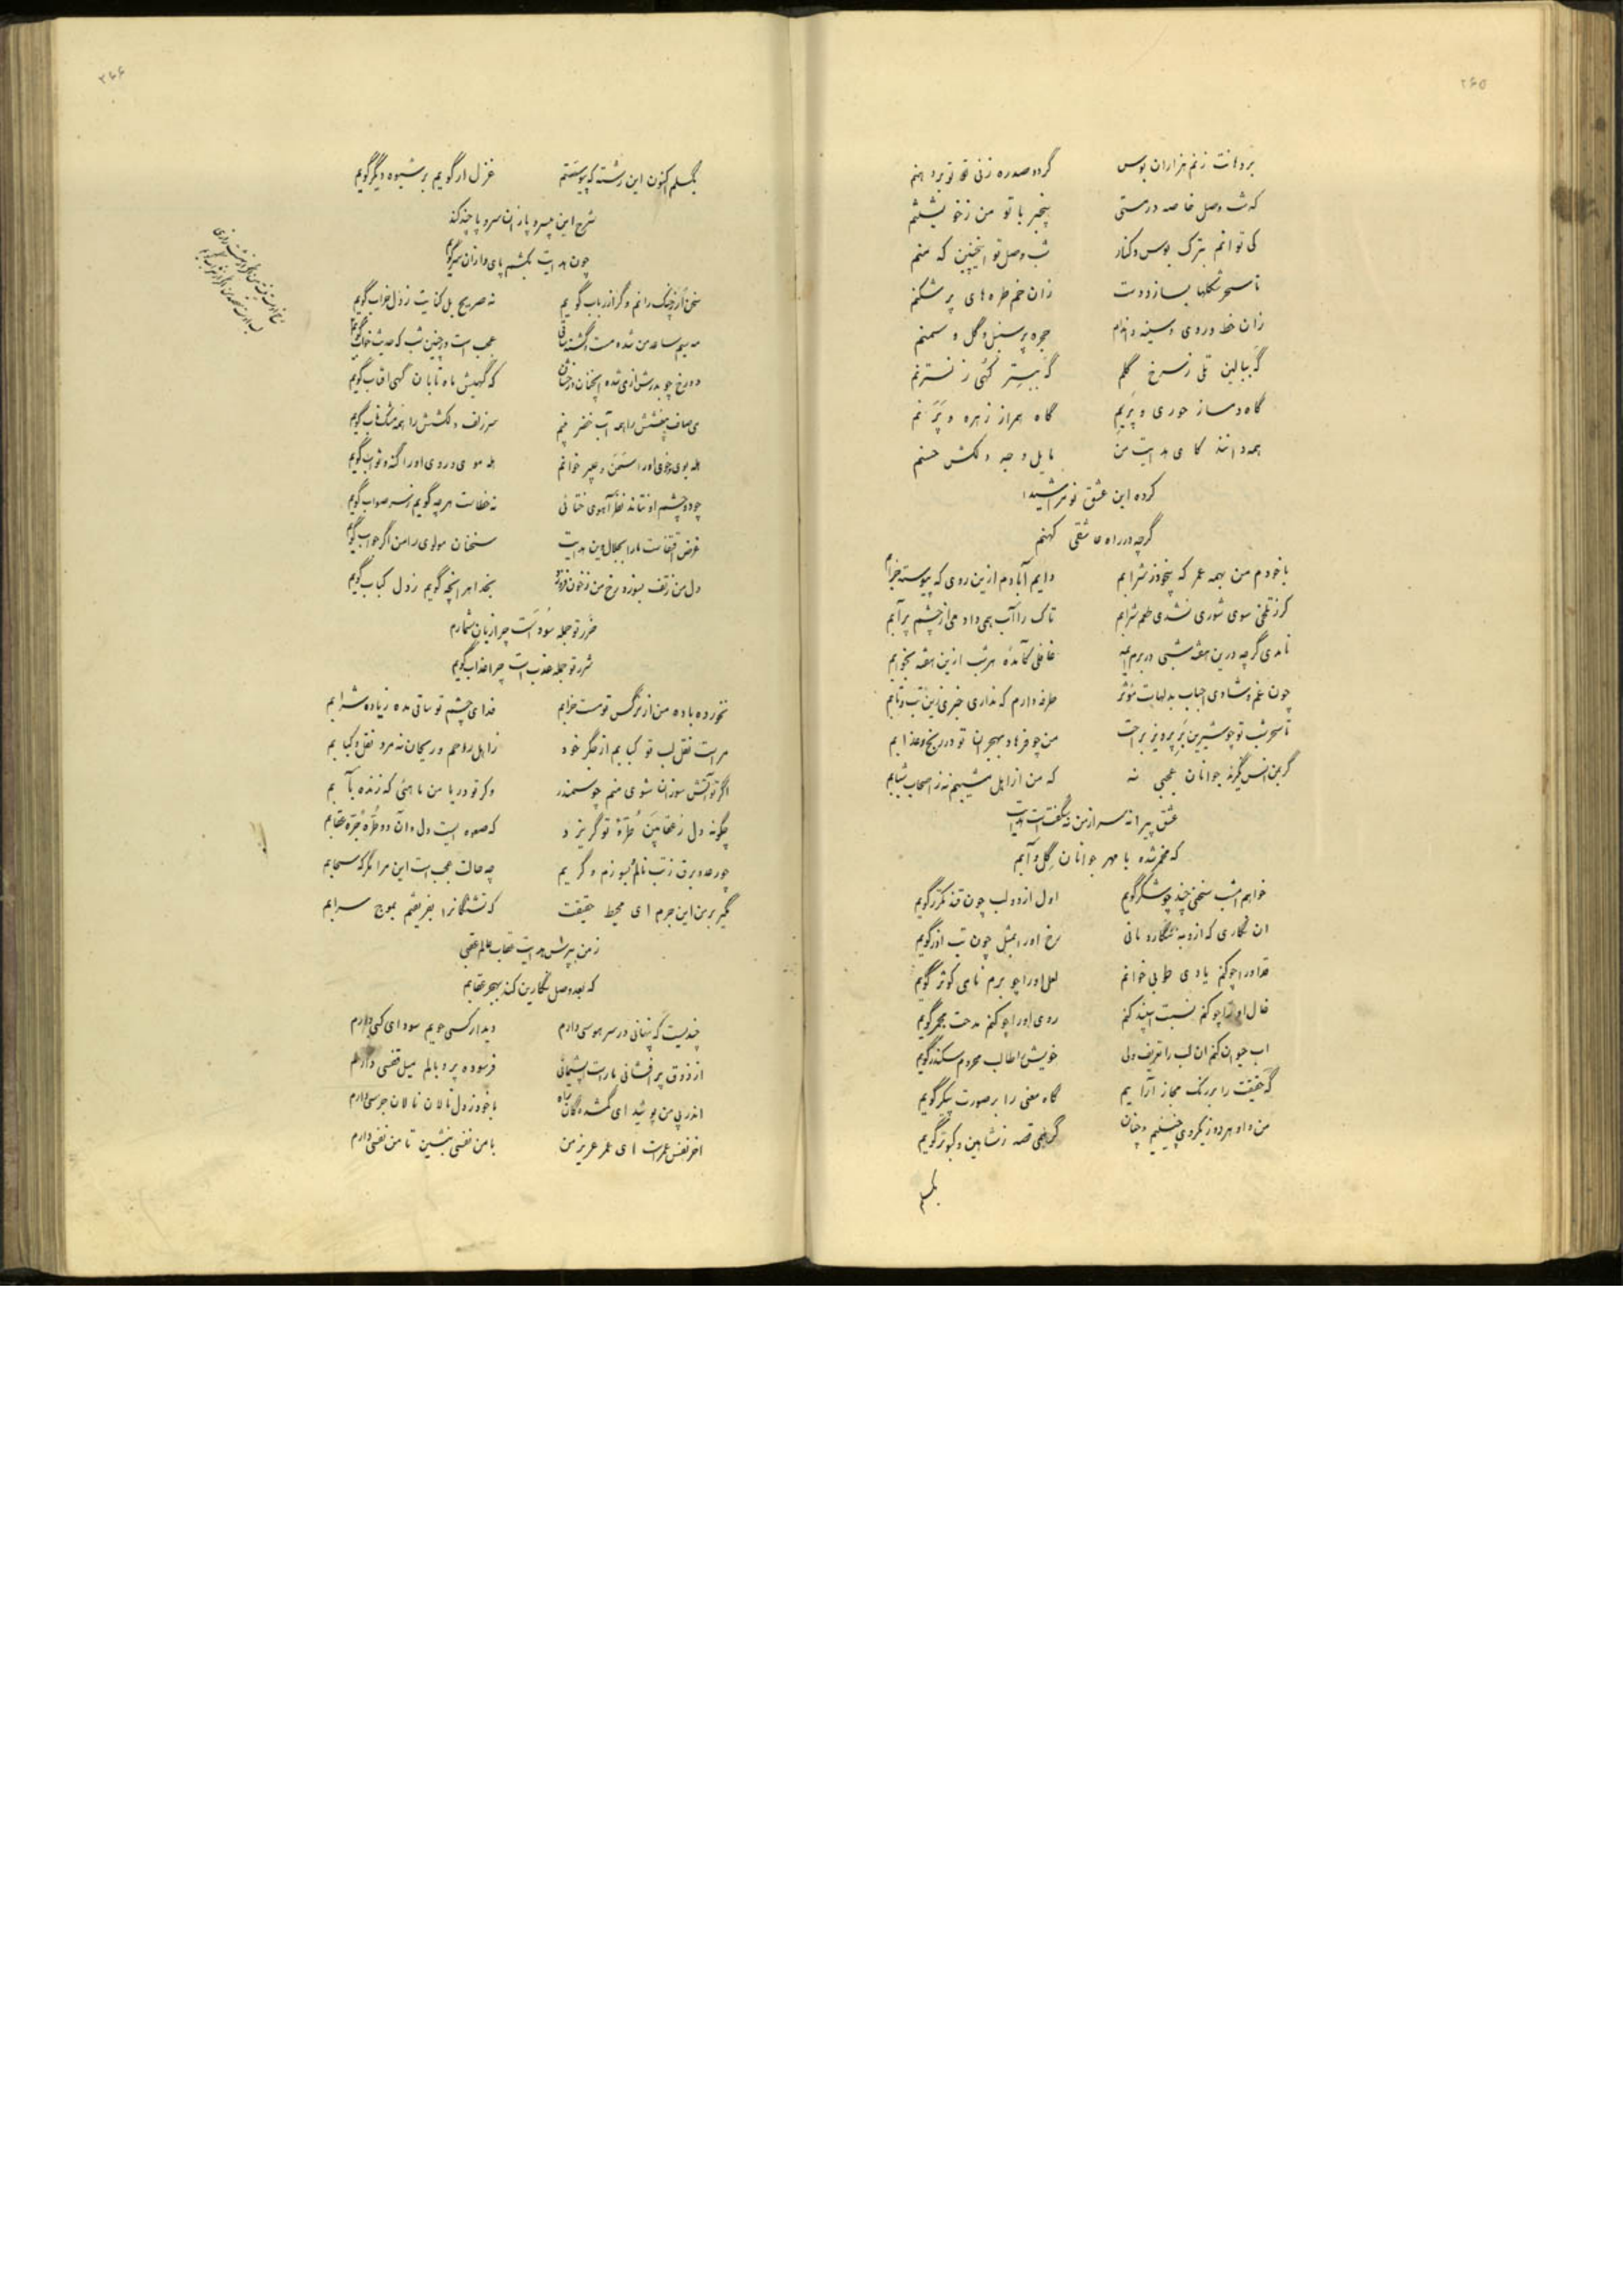 ۲۶۵
بر دهانت زنم هزاران بوس گرد و صدره زنی تو بر دهنم
که شب وصل خاصه در مستی بیخبر با تو من ز خویشتنم
کی توانم بترک بوس و کنار شب وصل تو اینچنین که منم
تا سحر شکلها بسازد دست زان خم طره های پر شکنم
زان خط و روی و سینه و اندام حجره پر سنبل و گل و سمنم
که ببالین تلی ز سرخ گلم که ببستر کهی ز نسترنم
گاه دمساز حوری و پریم گاه همراز زهره و پرنم
همه دانند کامی هدایت من مایل وجه دلکش حسنم
کرده این عشق نو مرا شیدا
گرچه در راه عاشقی کهنم
با خودم من بهمه عمر که بیخود ز شرابم دایم آبادم ازین روی که پیوسته خرابم
گر ز تلخی سوی شوری نشدی طعم شرابم تاک را آب همی داد می از چشم پر آبم
نامدی گرچه درین هفته شبی در برم غافلی کآمدۀ هر شب ازین هفته بخوابم
چون غم و شادی احباب بدلهاست مؤثر طرفه دارم که نداری خبری زین تب و تابم
تا سحر شب تو چو شیرین بر پرویز براحت من چو فرهاد بهجران تو در رنج و عذابم
گر بمن انس نگیرند جوانان عجبی نه که من از اهل مشیبم نه ز اصحاب شبابم
عشق پیرانه سر از من نه شگفت است هدایت
که مخمر شده با مهر جوانان گل و آبم
خواهم امشب سخنی چند چو شکر گویم اول از دو لب چون قند مکرر گویم
ان نگاری که ازو به ننگارد مانی رخ او را بمثل چون بت اذر گویم
قد او را چو کنم یادی طوبی خوانم لعل او را چو برم نامی کوثر گویم
خال او را چو کنم نسبت اسپند کنم روی او را چو کنم مدحت مجمر گویم
اب حیوان کنم ان لب را تعریف ولی خویش را طالب محروم سکندر گویم
گه حقیقت را بر رنگ مجاز آرایم گاه معنی را بر صورت پیکر گویم
من و او هر دو ز یکروی چنینیم و چنان گرهمی قصه ز شاهین و کبوتر گویم
بگسلم
۲۶۶
بگسلم اکنون این رشته که پیوستم غزل ار گویم بر شیوه دیگر گویم
شرح این بیسر و پا زان سر و پا چند کند
چون هدایت بکشم پای و از ان سر گویم
سخن ار ز چنگ رانم و گر از رباب گویم نه صریح بل کنایت ز دل خراب گویم
مه سیم ساعد من شده مست و گشته ساقی عجب است در چنین شب که حدیث خواب گویم
دو رخ چو بدرش از می شده انچنان درخشان که گهیش ماه تابان گهی افتاب گویم
می صاف بیغشش را همه آب خضر خوانم سر زلف دلکشش را همه مشک ناب گویم
همه بوی و خوی او را سمن و عبیر خوانم همه موی و روی او را گنه و ثواب گویم
چو دو چشم او نتاند نظر آهوی ختائی نه خطاست هر چه گویم ز سر صواب گویم
غرض اتفاقست ما را بجلال دین هدایت سخنان مولوی را من اگر جواب گویم
دل من ز تف بسوزد رخ من ز خون فروزد بخدا هر انچه گویم ز دل کباب گویم
ضرر تو جمله سود است چرا زیان شمارم
شرر تو جمله عذب است چرا عذاب گویم
نخورده باده من از نرگس تو مست خرابم فدای چشم تو ساقی مده زیاده شرابم
مراست نقل لب تو کبابم از جگر خود
اگر تو آتش سوزان شوی منم چو سمندر و گر تو دریا من ماهئی که زنده بآبم
چگونه دل ز عقابین طرۀ تو گریزد که صعوه ایست دل و ان دو طره جره عقابم
چو رعد و برق ز تب نالم و بسوزم و گریم چه حالت عجب است این مرا مگر که سحابم
مگیر بر من این جرم ای محیط حقیقت که تشنگانرا بفریفتم بموج سرابم
ز من بپرس هدایت عقاب عالم عقبی
که بعد وصل نگارین کند بهجر عقابم
چندیست که پنهانی در سر هوسی دارم دیدار کسی جویم سودای کسی دارم
از ذوق پر افشانی ماراست پشیمانی فرسوده پر و بالم میل قفسی دارم
اندر پی من پوئید ای گمشدگان راه با خود ز دل نالان نالان جرسی دارم
اخر نفس عمر است ای عمر عزیز من با من نفسی بنشین تا من نفسی دارم